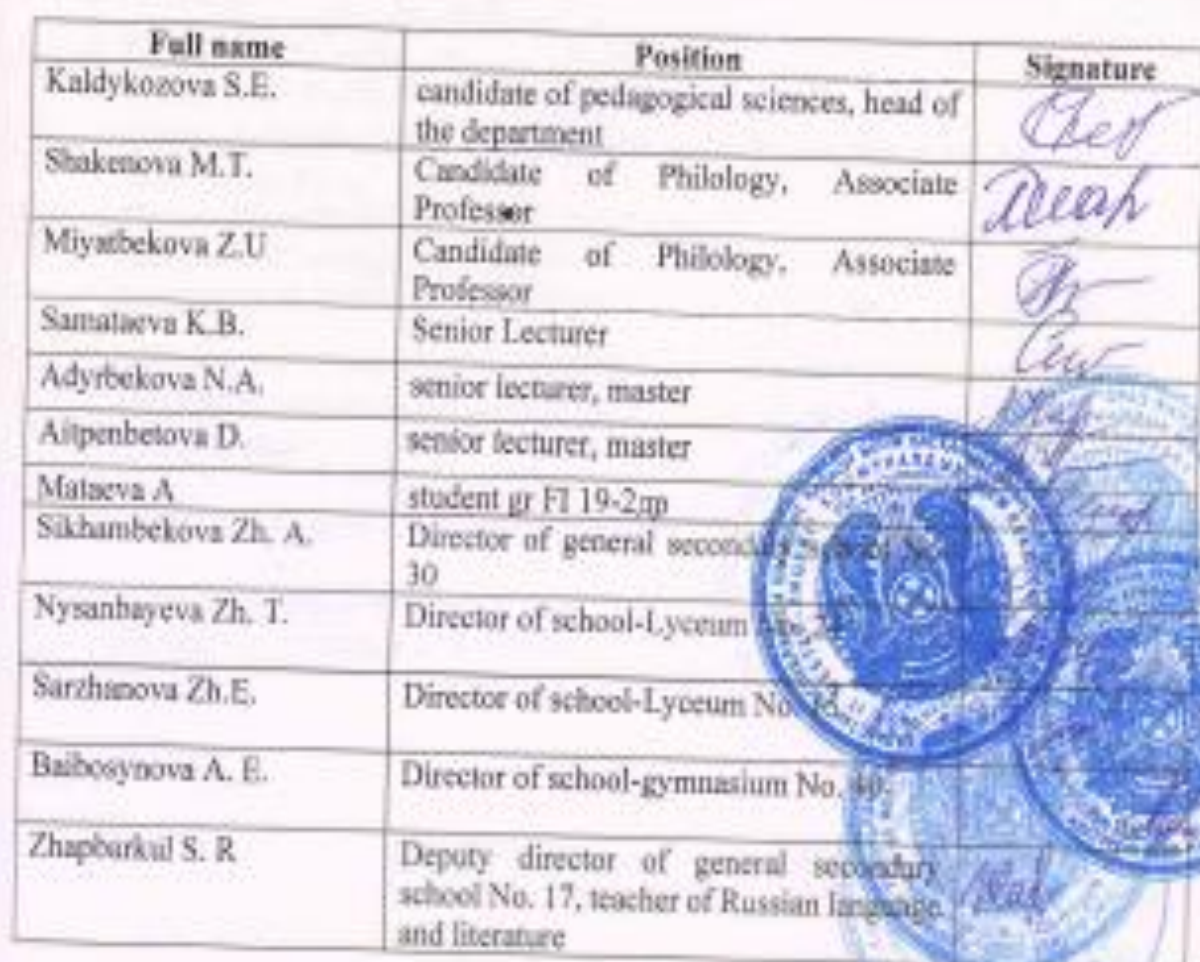 Full name Position Signature
Kaldykozova S.E. candidate of pedagogical sciences, head of
the department
Shakenova M.T. Candidate of Philology, Associate
Professor
Miyatbekova Z.U Candidate of Philology, Associate
Professor
Samataeva K.B. Senior Lecturer
Adyrbekova N.A. senior lecturer, master
Aitpenbetova D. senior lecturer, master
Mataeva A student gr FI 19-2пр
Sikhambekova Zh. A. Director of general secondary school No.
30
Nysanbayeva Zh. T. Director of school-Lyceum
Sarzhanova Zh.E. Director of school-Lyceum No.
Baibosynova A. E. Director of school-gymnasium No. 40.
Zhapbarkul S. R Deputy director of general secondary
school No. 17, teacher of Russian language
and literature